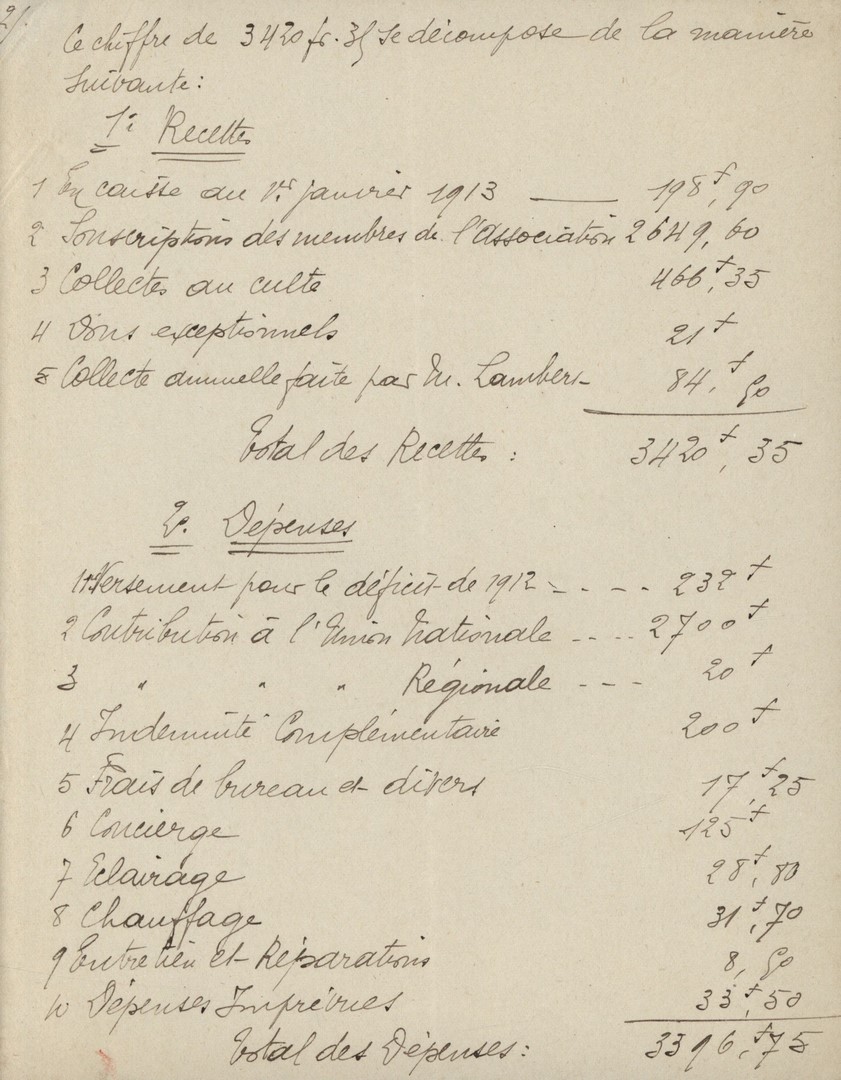 2/.
Ce chiffre de 3420 fr. 35 se décompose de la manière
suivante:
1º Recettes
1 En caisse au 1er janvier 1913 — 198f,90
2 Souscriptions des membres de l'Association 2649,60
3 Collectes au culte 466f,35
4 Dons exceptionnels 21f
5 Collecte annuelle faite par M. Lambert 84,f50
Total des Recettes: 3420f,35
2º. Dépenses
1 Versement pour le déficit de 1912 - . - - . 232f
2 Contribution à l'Union Nationale - - . . 2700f
3 " " " Régionale - - - 20f
4 Indemnité Complémentaire 200f
5 Frais de bureau et divers 17f,25
6 Concierge 125f
7 Eclairage 28f,80
8 Chauffage 31f,70
9 Entretien et Réparations 8,50
10 Dépenses Imprévues 33f,50
Total des Dépenses: 3396,f75